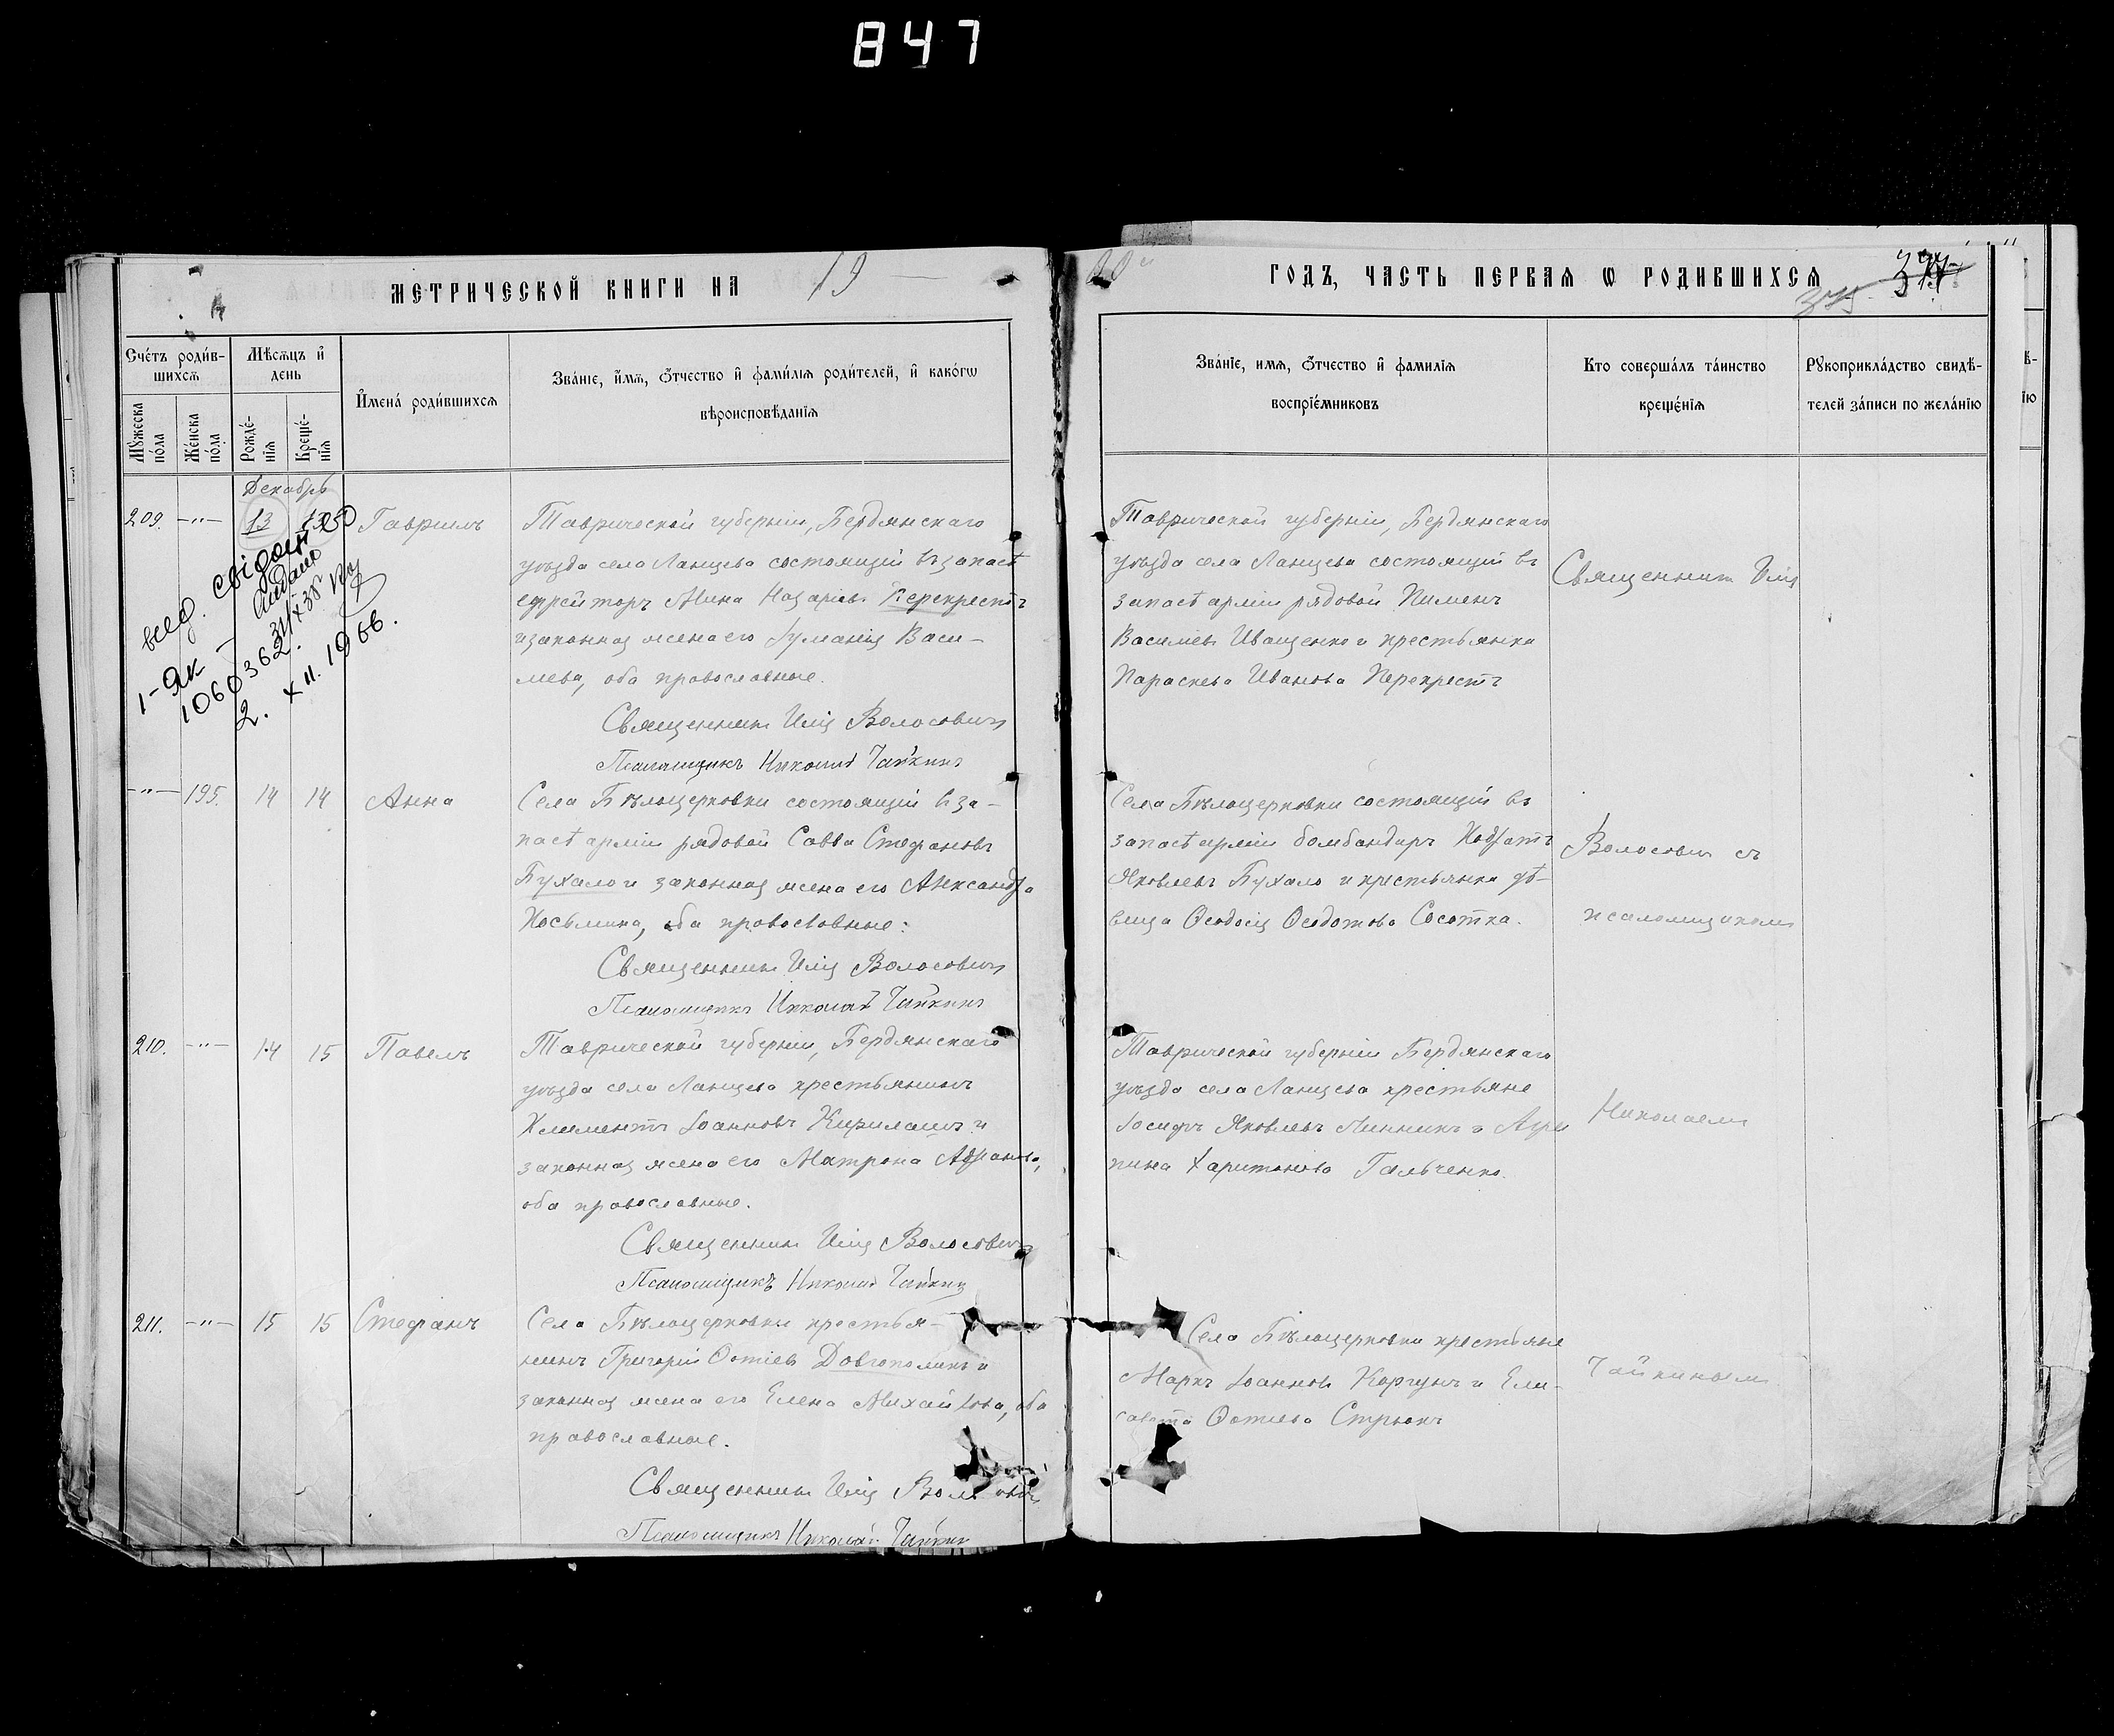 847
МЕТРИЧЕСКОЙ КНИГИ НА 19
00й ГОДЪ, ЧАСТЬ ПЕРВАЯ Ѡ РОДИВШИХСЯ
375
Счетъ родив-
шихся
Мужеска
пола
Женска
пола
Мѣсяцъ и
день
Рожде-
нія
Креще-
нія
Имена родившихся
Званіе, имя, отчество и фамилія родителей, и какогѡ
вѣроисповѣданія
Званіе, имя, отчество и фамилія
воспріемниковъ
Кто совершалъ таинство
крещенія
Рукоприкладство свидѣ-
телей записи по желанію
Декабрь
209. —"— 13 13 Гавріилъ
Таврической губерніи, Бердянскаго
уѣзда села Ланцева состоящій въ запасѣ
ефрейторъ Мина Назаріевъ Перекрестъ
и законная жена его Іуманія Васи-
льева, оба православные.
Священникъ Илія Волосовичъ
Псаломщикъ Николай Чайкинъ
Таврической губерніи, Бердянскаго
уѣзда села Ланцева состоящій въ
запасѣ арміи рядовой Пименъ
Васильевъ Иващенко и крестьянка
Параскева Иванова Перекрестъ
Священникъ Илія
1060362.
2. XII. 1966.
—"— 195. 14 14 Анна
Села Бѣлоцерковки состоящій въ за-
пасѣ арміи рядовой Савва Стефановъ
Бухало и законная жена его Александра
Косьмина, оба православные:
Священникъ Илія Волосовичъ
Псаломщикъ Николай Чайкинъ
Села Бѣлоцерковки состоящій въ
запасѣ арміи бомбандиръ Кодратъ
Яковлевъ Бухало и крестьянка дѣ-
вица Ѳеодосія Ѳеодотова Сосотка.
Волосовичъ съ
псаломщикомъ
210. —"— 14 15 Павелъ
Таврической губерніи, Бердянскаго
уѣзда села Ланцева крестьянинъ
Климентъ Іоанновъ Кирилашъ и
законная жена его Матрона
оба православные.
Священникъ Илія Волосовичъ
Псаломщикъ Николай Чайкинъ
Таврической губерніи Бердянскаго
уѣзда села Ланцева крестьяне
Іосифъ Яковлевъ Линникъ и Агри
пина Харитонова Гальченко.
Николаемъ
211. —"— 15 15 Стефанъ
Села Бѣлоцерковки крестья-
нинъ Григорій Фотіевъ Довгополикъ и
законная жена его Елена Михайлова, оба
православные.
Священникъ Илія Волосовичъ
Псаломщикъ Николай Чайкинъ
Села Бѣлоцерковки крестьяне
Маркъ Іоанновъ Коргунъ и Ели-
савета Фотиева Стрюкъ
Чайкинымъ